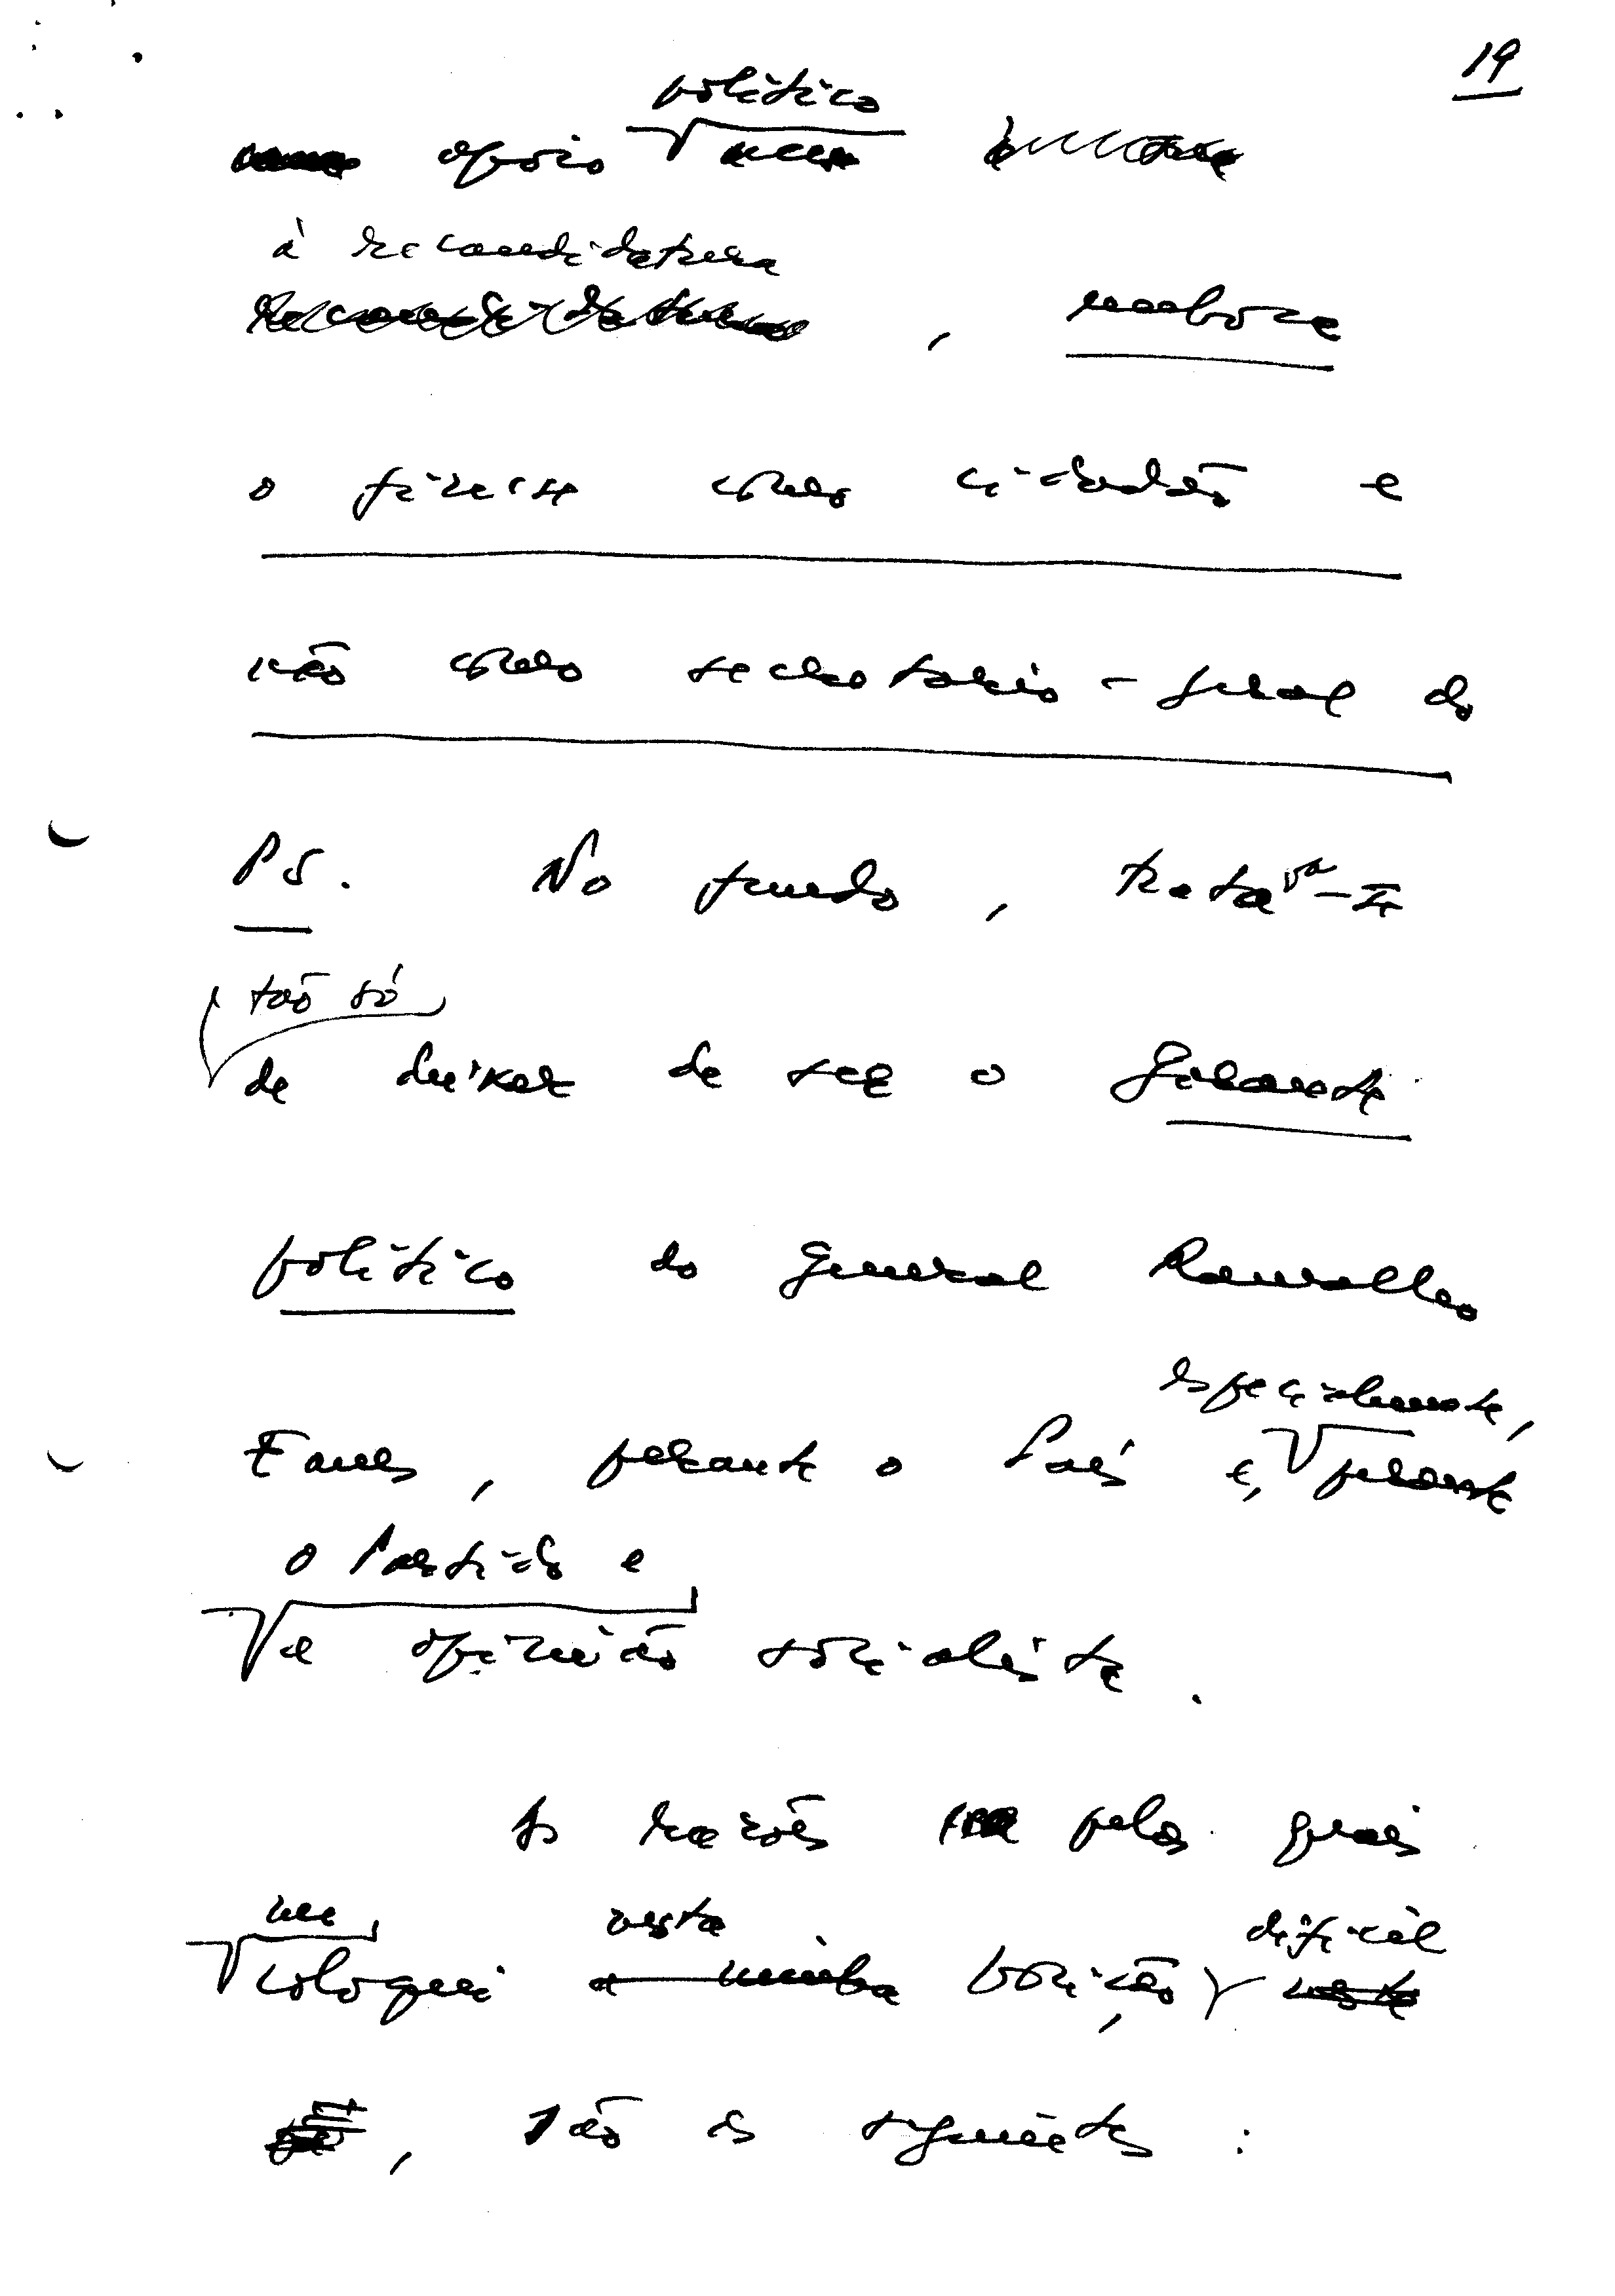 19
político
apoio
à recandidatura
, embora
o fizesse como cidadão e
não como secretário-geral do
PS. No fundo, tratava-se
tão só
de deixar de ser o garante
político do general Ramalho
especialmente,
Eanes, perante o País e, perante
o Partido e
a opinião socialista.
As razões pelas quais
me nesta difícil
coloquei a minha posição,
, são as seguintes: